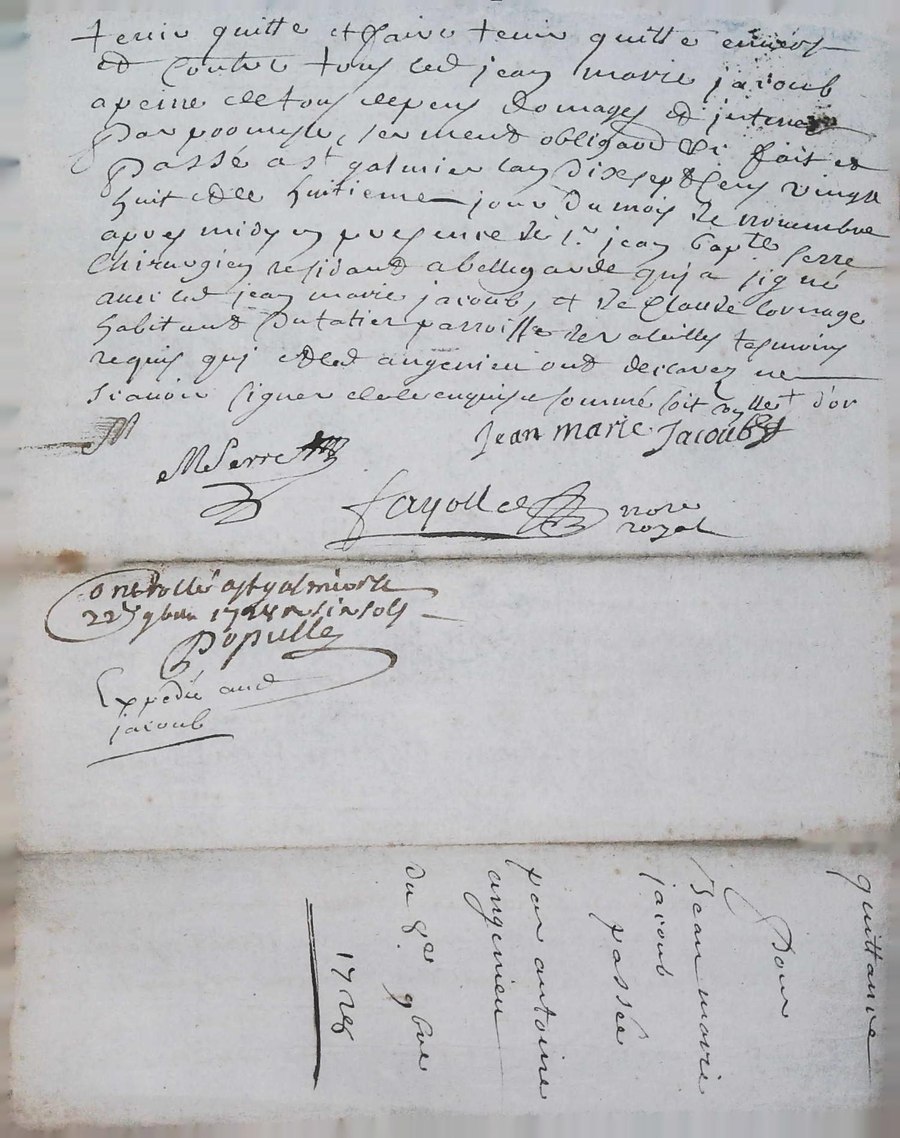 tenir quitte et faire tenir quitte envers
et contre tous led jean marie jacoub
a peine de tous depens domages et interest
par promesse, serment obligaōns fait et
Passé a st galmier lan dix sept cens vingt
huit et le huitieme jour du mois de novembre
apres midy en presence de sr jean bapte serre
Chirurgien residant a bellegarde qui a signé
avec led jean marie jacoub, et de Claude
habitant parroisse de valeilles tesmoins
requis qui et led angenieu ont declarez ne
scavoir signer de ce enquis et sommé soit
MSerre
Jean Marie Jacoub
fayolle
nore
royal
Controllé a st galmier le
22e 9bre 1728 sols
Populle
Expedié aud
jacoub
quittance
Pour
Jean marie
jacoub
passée
par antoine
angenieu
du 8e 9bre
1728